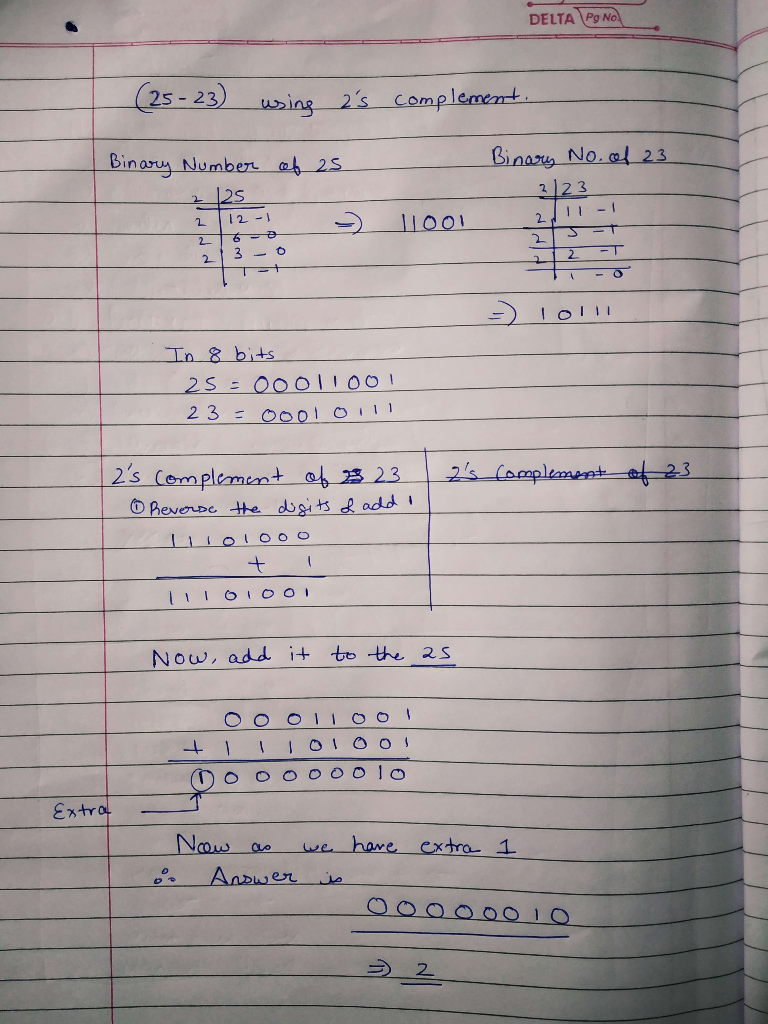 DELTA Pg No.
(25-23) using 2's complement.
Binary Number of 25
2 | 25
2 | 12 - 1
2 | 6 - 0
2 | 3 - 0
1 - 1
=) 11001
Binary No. of 23
2 | 23
2 | 11 - 1
2 | 5 - 1
2 | 2 - 1
1 - 0
=) 10111
In 8 bits
25 = 00011001
23 = 00010111
2's Complement of 23
① Reverse the digits & add 1
11101000
+ 1
11101001
2's Complement of 23
Now, add it to the 25
00011001
+ 11101001
① 00000010
Extra
Now as we have extra 1
∴ Answer is
00000010
=> 2